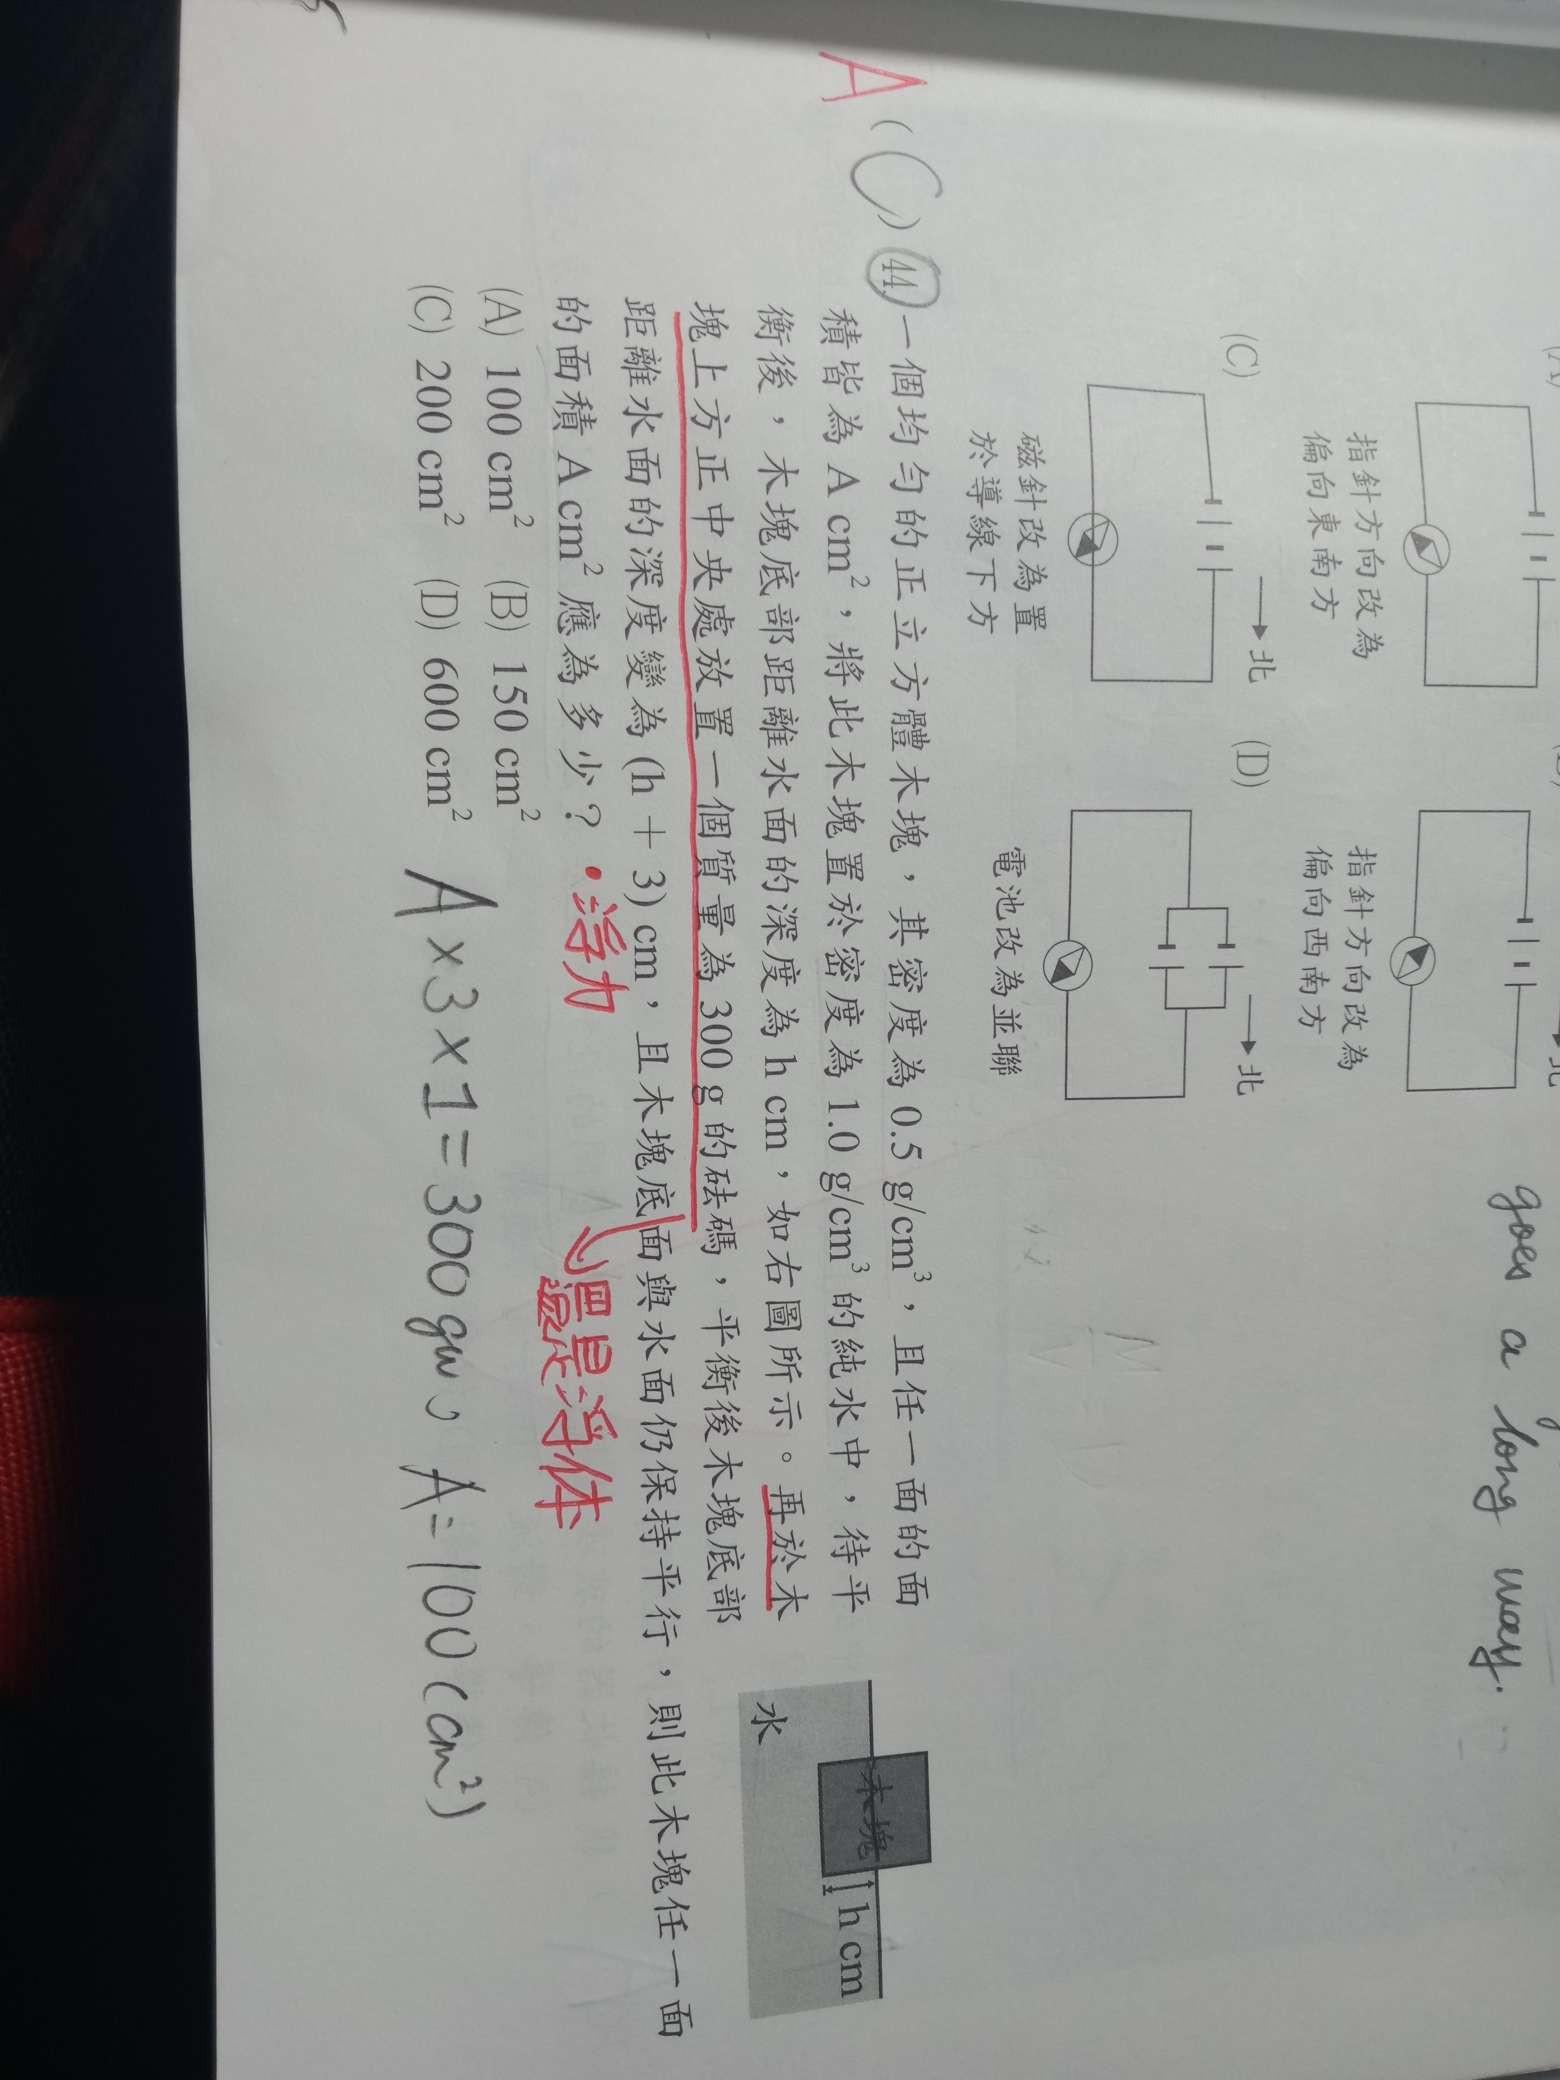 指針方向改為
偏向東南方
指針方向改為
偏向西南方
(C)
北
磁針改為置
於導線下方
(D)
北
電池改為並聯
goes a long way.
A
(C) 44. 一個均勻的正立方體木塊，其密度為 0.5 g/cm³，且任一面的面
積皆為 A cm²，將此木塊置於密度為 1.0 g/cm³ 的純水中，待平
衡後，木塊底部距離水面的深度為 h cm，如右圖所示。再於木
塊上方正中央處放置一個質量為 300 g 的砝碼，平衡後木塊底部
距離水面的深度變為 (h + 3) cm，且木塊底面與水面仍保持平行，則此木塊任一面
的面積 A cm² 應為多少？
•浮力
還是浮体
(A) 100 cm² (B) 150 cm²
(C) 200 cm² (D) 600 cm²
A×3×1=300gw，A=100(cm²)
木塊
h cm
水